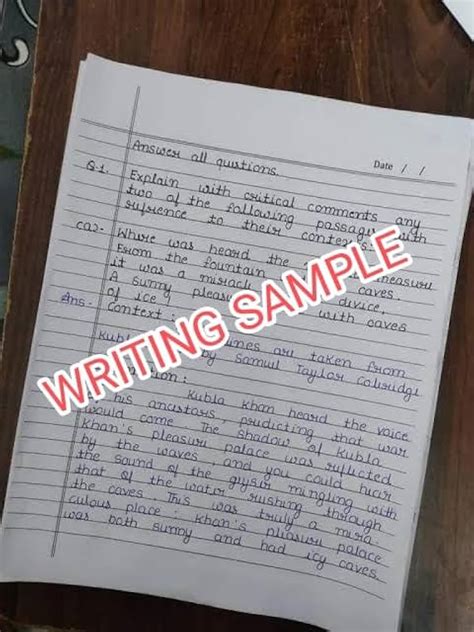 Date / /
Answer all qustions.
Q.1. Explain with critical comments any
two of the following passages with
refrence to their contexts.
(a)- Where was heard the measure
From the fountain caves.
it was a miracle device,
A sunny pleasu with caves
of ice,
Ans - Context :
Kubla lines are taken from
by Samul Taylor Colridge
Kubla Khan heard the voice
his ancstars, prdicting that war
would come The Shadow of Kubla
Khan's pleasur palace was reflected
by the waves, and you could hear
the sound of the gryser mingling with
that of the water rushing through
the caves. This was truly a mira-
culous place : Khan's pleasur palace
was both sunny and had icy caves.
WRITING SAMPLE